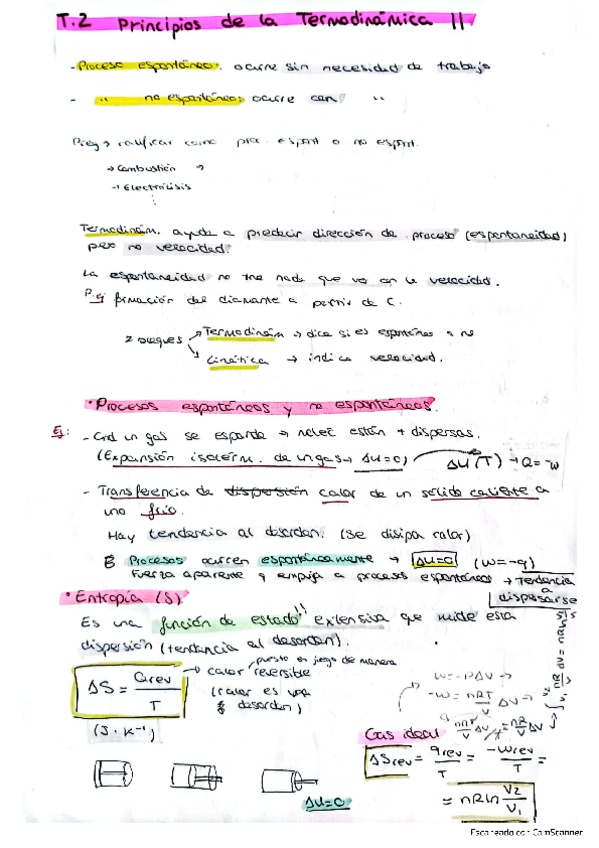 T.2 Principios de la Termodinámica II
- Proceso espontáneo: ocurre sin necesidad de trabajo
- " no espontáneo: ocurre con "
Preg → calificar como proc. espont o no espont.
→ Combustión →
→ Electrólisis
Termodinám. ayuda a predecir dirección de proceso (espontaneidad)
pero no velocidad.
La espontaneidad no tne nada que ver con la velocidad.
P.ej formación del diamante a partir de C.
2 bloques Termodinám → dice si es espontáneo o no
Cinética → indica velocidad.
· Procesos espontáneos y no espontáneos.
Ej: - Cnd un gas se expande → están + dispersas.
(Expansión isoterm. de un gas → ΔU=0) ΔU(T) → Q=-w
- Transferencia de dispersión calor de un sólido caliente a
uno frío.
Hay tendencia al desorden. (Se disipa calor)
Procesos ocurren espontáneamente → ΔU=0 (w=-q)
Fuerza aparente q empuja a procesos espontáneos → Tendencia
a
dispersarse
· Entropía (S)
Es una función de estado extensiva que mide esta
dispersión (tendencia al desorden).
ΔS = Qrev / T → calor puesto en juego de manera reversible
(calor es
desorden)
(J · K⁻¹)
w=-PΔV →
-w = nRT/V ΔV →
nRT/V ΔV/T = nR/V ΔV
Gas ideal
ΔSrev = qrev/T = -wrev/T =
= nR ln V2/V1
ΔU=0
Escaneado con CamScanner